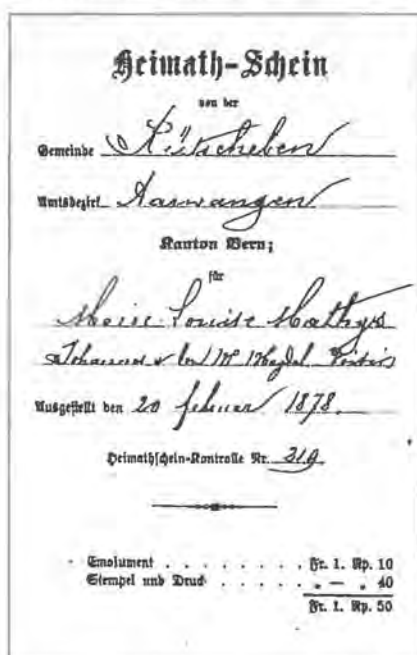 Heimath-Schein
von der
Gemeinde Rütscheben
Amtsbezirk Aarwangen
Kanton Bern;
für
Marie Louise Mathys
Johannes
Ausgestellt den 20 februar 1878.
Heimathschein-Kontrolle Nr. 319
Emolument . . . . . . . . Fr. 1. Rp. 10
Stempel und Druck . . . . . „ — „ 40
Fr. 1. Rp. 50